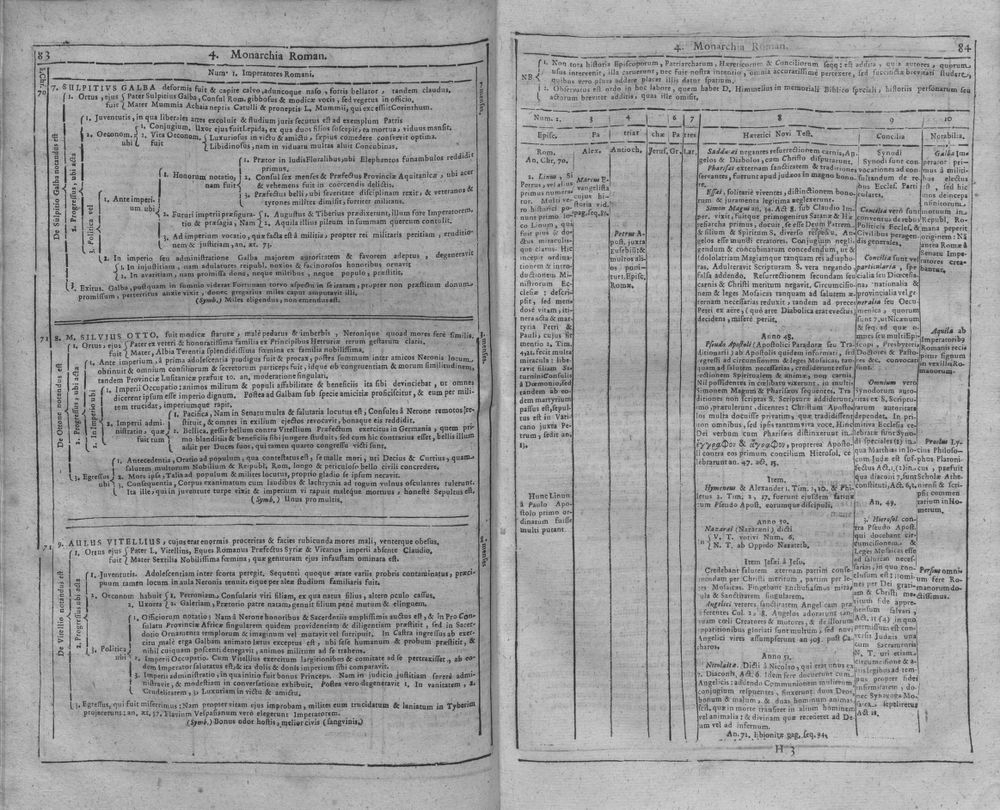 83
4. Monarchia Roman.
Num. 1. Imperatores Romani.
70
7. SULPITIUS GALBA deformis fuit & capite calvo, aduncoque naso, fortis bellator, tandem claudus.
1. Ortus, ejus fuit
Pater Sulpitius Galba, Consul Rom. gibbosus & modicæ vocis, sed vegetus in officio,
Mater Mummia Achaia neptis Catulli & proneptis L. Mummii, qui excessit Corinthum.
De Sulpitio Galba notandus est
2. Progressus, ubi acta
1. Juventutis, in qua liberales artes excoluit & studium juris secutus est ad exemplum Patris
2. Oeconom. ubi fuit
1. Conjugium. Uxor ejus fuit Lepida, ex qua duos filios suscepit; ea mortua, viduus mansit.
2. Vita Oeconom.
Luxuriosus in victu & amictu, sæpius comedere consuevit optima.
Libidinosus, nam in viduam multas aluit Concubinas.
3. Politica vel
1. Ante imperium ubi
1. Honorum notatio, nam fuit
1. Prætor in ludis Floralibus, ubi Elephantos funambulos reddidit
primus,
2. Consul sex menses & Præfectus Provinciæ Aquitanicæ, ubi acer
& vehemens fuit in coercendis delictis.
3. Præfectus belli, ubi severitate disciplinam rexit, & veteranos &
tyrones milites dimisit, fortiter militans.
2. Futuri imperii præsignatio & præsagia, Nam
1. Augustus & Tiberius prædixerunt, illum fore Imperatorem.
2. Aquila illius pullum in summam quercum contulit.
3. Ad imperium vocatio, quæ facta est à militia, propter rei militaris peritiam, eruditionem & justitiam, an. æt. 73.
2. In imperio seu administratione Galba majorem autoritatem & favorem adeptus, degeneravit
1. In injustitiam, nam adulatores reipub. noxios & facinorosos honoribus ornavit
2. In avaritiam, nam promissa domi, neque militibus, neque populo, præstitit.
3. Exitus. Galba, postquam in somnio videret Fortunam torvo aspectu in se iratam, propter non præstitum donum,
promissum, perterritus anxie vixit, donec gregarius miles caput amputavit illi.
(Symb.) Miles eligendus, non emendus est.
71
8. M. SILVIUS OTTO, fuit modicæ staturæ, malè pedatus & imberbis, Neronique quoad mores ferè similis.
1. Ortus, ejus fuit
Pater ex veteri & honoratissima familia ex Principibus Hetruriæ rerum gestarum claris.
Mater, Albia Terentia splendidissima fœmina ex familia nobilissima,
De Ottone notandus est
2. Progressus, ubi acta
1. Ante imperium, à prima adolescentia prodigus fuit & procax, postea summum inter amicos Neronis locum,
obtinuit & omnium consiliorum & secretorum particeps fuit, idque ob congruentiam & morum similitudinem,
tandem Provinciæ Lusitanicæ præfuit 10. an. moderatione singulari,
2. In Imperio ubi
1. Imperii Occupatio: animos militum & populi affabilitate & beneficiis ita sibi devinciebat, ut omnes
dicerent ipsum esse imperio dignum. Postea ad Galbam sub specie amicitiæ proficiscitur, & eum per militem trucidat, imperiumque rapit.
2. Imperii administratio, quæ fuit tum
1. Pacifica, Nam in Senatu multa & salutaria locutus est, Consules à Nerone remotos restituit, & omnes in exilium ejectos revocavit, bonaque eis reddidit.
2. Bellica, gessit bellum contra Vitellium Præfectum exercitus in Germania, quem primo blanditiis & beneficiis sibi jungere studuit, sed cum hic contrarius esset, bellis illum
adiit per Duces suos, qui tamen quarto congressu victi sunt,
3. Egressus, ubi
1. Antecedentia, Oratio ad populum, qua contestatus est, se malle mori, uti Decius & Curtius, quam
salutem multorum Nobilium & Reipubl. Rom. longo & periculoso bello civili concredere.
2. Mors ipsa, Talia ad populum & milites locutus, proprio gladio se ipsum necavit.
3. Consequentia, Corpus exanimatum cum laudibus & lachrymis ad rogum vulnus osculantes tulerunt.
Ita ille, qui in juventute turpe vixit & imperium vi rapuit maleque mortuus, honestè Sepultus est.
(Symb.) Unus pro multis.
71
9. AULUS VITELLIUS, cujus erat enormis proceritas & facies rubicunda mores mali, venterque obesus,
1. Ortus ejus fuit
Pater L, Vitellius, Eques Romanus Præfectus Syriæ & Vicarius imperii absente Claudio,
Mater Sextilia Nobilissima fœmina, quæ genituram ejus infaustam ominata est.
De Vitellio notandus est
2. Progressus ubi acta
1. Juventutis. Adolescentiam inter scorta peregit. Sequenti quoque ætate variis probris contaminatus, præcipuum tamen locum in aula Neronis tenuit, eique per aleæ studium familiaris fuit.
2. Oeconom habuit Uxores
1. Petroniam, Consularis viri filiam, ex qua natus filius, altero oculo cassus,
2. Galeriam, Prætorio patre natam, genuit filium penè mutum & elinguem.
3. Politica ubi
1. Officiorum notatio; Nam à Nerone honoribus & Sacerdotiis amplissimis auctus est, & in Pro Consulatu Provinciæ Africæ singularem quidem providentiam & diligentiam præstitit, sed in Sacerdotio Ornamenta templorum & imaginum vel mutavit vel surripuit. In Castra ingressus ab exercitu malè erga Galbam animato lætus exceptus est, ubi sese humanum & probum præstitit, &
nihil cuiquam poscenti denegavit, animos militum ad se trahens.
2. Imperii Occupatio. Cum Vitellius exercitum largitionibus & comitate ad se pertraxisset, ab eodem Imperator salutatus est, & ita dolis & donis imperium sibi comparavit.
3. Imperii administratio, in qua initio fuit bonus Princeps. Nam in judicio justitiam severè administravit, & modestiam in conversatione exhibuit. Postea vero degeneravit 1. In vanitatem, 2.
Crudelitatem, 3. Luxuriam in victu & amictu.
3. Egressus, qui fuit miserrimus; Nam propter vitam ejus improbam, milites eum trucidatum & laniatum in Tyberim
projecerunt: an, æt, 57. Flavium Vespasianum verò elegerunt Imperatorem.
(Symb.) Bonus odor hostis, melior civis (sanguinis.)
4. Monarchia Roman.
84
NB
1. Non tota historia Episcoporum, Patriarcharum, Hæreticorum & Conciliorum seqq: est addita, quia autores, quorum
usus intervenit, illa caruerunt, nec fuit nostra intentio, omnia accuratissimè pertexere, sed succinctæ brevitati studere,
quibus vero plura addere placet illis datur spatium.
2. Observatus est ordo in hoc labore, quem habet D. Himmelius in memoriali Biblico speciali, historiis personarum seu
actorum breviter additis, quas ille omisit.
Num. 2. 3 4 6 7 8 9 10
Episc. Pa triar chæ Pa tres Hæretici Novi Test. Concilia Notabilia.
Rom.
An, Chr, 70.
2. Linus, Si
Petrus, vel alius
primus numeratur. Multi vero historici ponunt primo loco Linum, qui
fuit pius & doctus miraculisque clarus. Hic
incepit ordinationem & introductionem Ministrorum Ecclesiæ: descripsit, sed mendosè vitam, itinera acta & martyria Petri &
Pauli; cujus fit
mentio 2. Tim,
4,21. fecit multa
miracula: liberavit filiam Saturnini Consulis
à Dæmonio, sed
tandem ab eodem martyrium
passus est, sepultus est in Vaticano juxta Petrum, sedit an,
Hunc Linum
à Paulo Apostolo primo ordinatum fuisse
multi putant.
Alex.
Marcus Evangelista
cujus historia vid.
pag. seq. 85.
Antioch,
Petrus Apost. juxta
Eusebium
multos alios ponitur Episc.
Romæ,
Jeruf, Gr. Lat.
Sadducæi negantes resurrectionem carnis, Angelos & Diabolos, cum Christo disputarunt.
Pharisæi externam sanctitatem & traditiones
servantes, fuerunt apud judæos in magno honore.
Essæi, solitariè viventes, distinctionem bonorum & juramenta legitima neglexerunt.
Simon Magus an, 34. Act 8. sub Claudio Imper. vixit, fuitque primogenitus Satanæ & Hæresiarcha primus, docuit, se esse Deum Patrem
& Filium & Spiritum S. diverso respectu. Angelos esse mundi creatores. Conjugium negligendum & concubinatum concedendum, ut &
Idololatriam Magiamque tanquam res adiaphoras. Adulteravit Scripturam S. vera negando
falsa addendo, Resurrectionem secundum seu
carnis & Christi meritum negavit. Circumcisionem & leges Mosaicas tanquam ad salutem æternam necessarias reduxit, tandem ad preces
Petri ex aere, (quò arte Diabolica erat evectus)
decidens, miserè periit.
Anno 48.
Pseudo Apostoli (Apostolici Paradoræ seu Traditionarii) ab Apostolis quidem informati, sed
regressi ad circumcisionem & leges Mosaicas; tanquam ad salutem necessarias, crediderunt resurrectionem Spiritualem & animæ, non carnis.
Nil possidentes in cœlibatu vixerunt, in multis
Simonem Magum & Pharisæos sequentes, Traditiones non scriptas S. Scripturæ addiderunt,
imo, prætulerunt, dicentes; Christum Apostolos multa docuisse privatim, quæ tradidissent
non omnibus, sed ipsis tantum viva voce. Hinc
Dei verbum cum Pharisæis distinxerunt in
ἔγγραφον & ἄγραφον, propterea Apostoli contra eos primum concilium Hierosol, celebrarunt an. 47. act, 15.
Item.
Hymeneus & Alexander 1. Tim. 1,20. & Philetus 2. Tim, 2, 17. fuerunt ejusdem farinæ
cum Pseudo Apost. eorumque discipuli.
Anno 50.
Nazaræi (Nazaræni) dicti
V. T. votivi Num. 6.
N. T. ab Oppido Nazareth.
Item Jesæi à Jesu.
Credebant salutem æternam partim consequendam per Christi meritum, partim per leges Mosaicas. Fingebant Enthusiasmos miracula & Sanctitatem singularem.
Angelici veteres sanctitatem Angelicam præferentes Col. 2, 8. Angelos adorarunt tanquam cœli Creatores & motores, & de illorum
apparitionibus gloriati sunt multum, sed novi
Angelici vires assumpserunt an 703. post Charos,
Anno 51.
Nicolaitæ. Dicti à Nicolao, qui erat unus ex
7. Diaconis, Act, 6. Idem ferè docuerunt cum
Angelicis; addendo Communionem mulierum,
conjugium respuentes, finxerunt duos Deos,
bonum & malum, & duas hominum animas,
esse, quæ in morte transirent in alium hominem
vel animalia; & divinam quæ recederet ad Deum vel ad infernum.
An. 72, Ebionitæ pag, seq. 94.
Synodi
Synodi sunt convocationes ad consultandum de rebus Eccles. Particulares.
Concilia verò sunt
conventus de rebus
Politicis Eccles, &
Civilibus paragendis generales.
Concilia sunt vel
particularia, specialia seu Diœcesana; nationalia &
provincialia vel generalia seu Oecumenica, quorum
sunt 7, ut Nicænum
& seq. ad quæ omnes seu multi Episcopi, Presbyteri
Doctores & Pastores &c. convocati
sunt.
Omnium verò
Synodorum autoritas ex S. Scripturarum autoritate
dependet, In primitiva Ecclesia celebratæ sunt Synodi speciales (1) in
qua Matthias in locum Judæ est suffectus Act, 1, (2) in
qua diaconi 7, sunt
constituti, Act. 6, 1,
An, 49.
3. Hierosol. contra Pseudo Apost.
qui docebant circumcisionem &
Leges Mosaicas esse
ad salutem necessarias, in quo conclusum est: homines per Dei gratiam & Christi meritum fide apprehensum salvari,
Act, 15. (4) in quo
permissum est conversis Judæis una
cum Sacramentis
N, T. uti etiam
circumcisione & aliis legibus ad tempus propter fidei
infirmitatem, donec Synagoga Mosaica sepeliretur
Act 21.
Galba Imperator primus à militibus electus
est, sed hic
mos deinceps
in Reipubl, Romana peperit
originem: Nam
antea Romæ à
Senatu Imperatores creabantur,
Aquila ab
Imperatoribus
Romanis recipitur signum
in vexillis Romanorum.
Proclus Lycius Philosophus Platonicus, præfuit
Scholæ Atheniensi & scripsit commentarium in Homerum,
Persius omnium ferè Romanorum doctissimus.
H 3